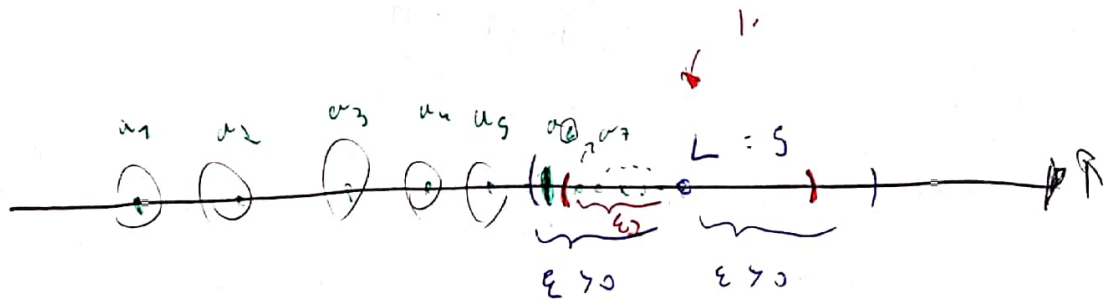 a1 a2 a3 a4 a5 a6 a7 L = 5
ε2
ε > 0 ε > 0